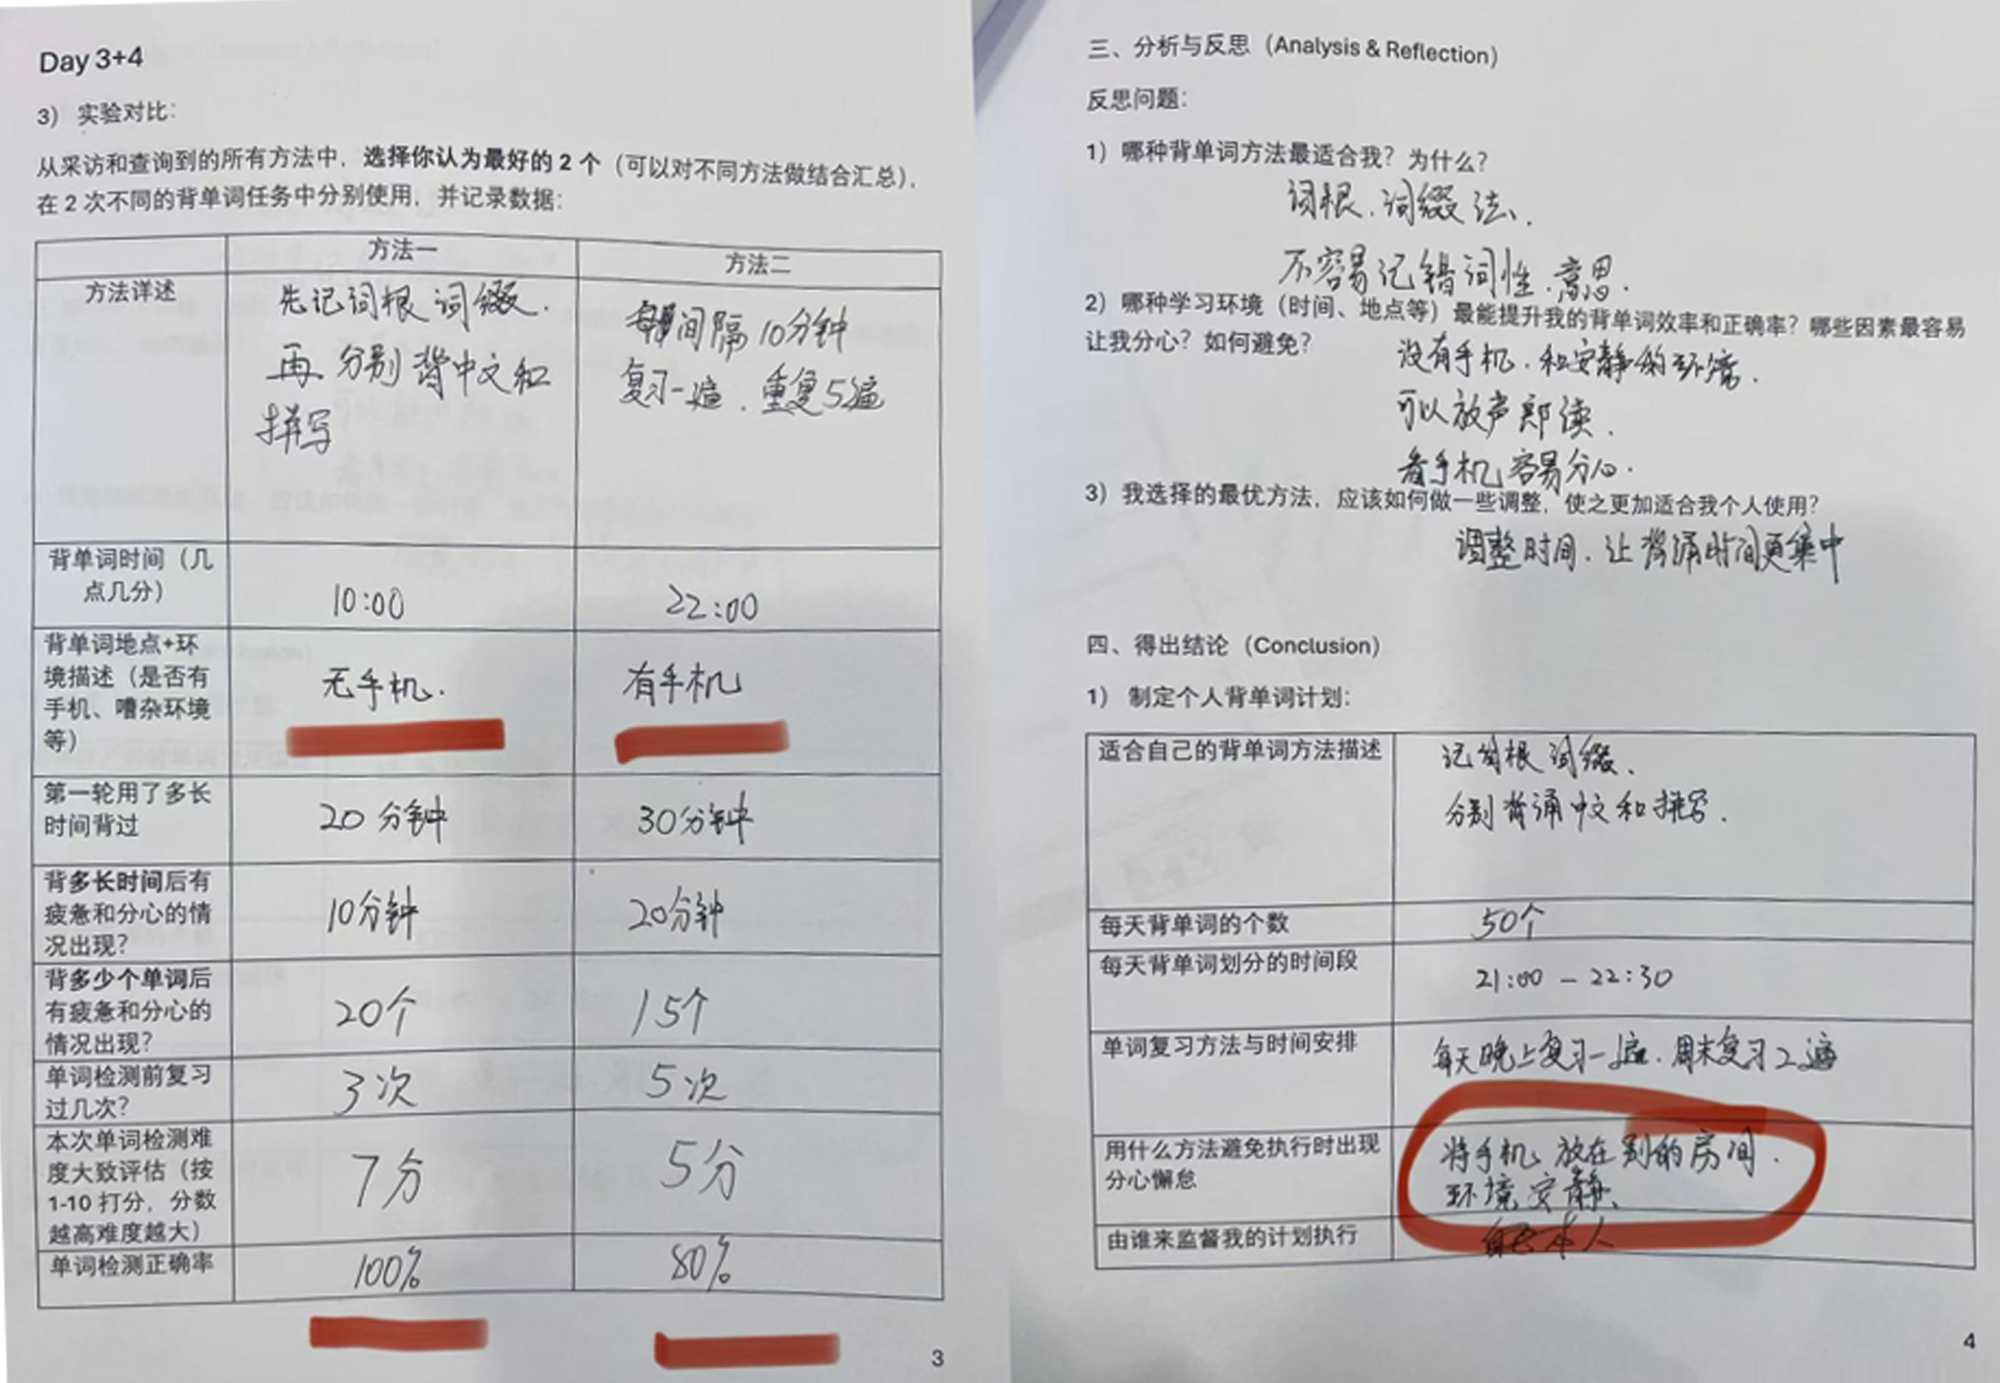 Day 3+4
3） 实验对比：
从采访和查询到的所有方法中，选择你认为最好的 2 个（可以对不同方法做结合汇总），
在 2 次不同的背单词任务中分别使用，并记录数据：
方法一
方法二
方法详述
先记词根 词缀.
再 分别 背中文和
拼写
间隔 10分钟
复习一遍、重复5遍
背单词时间（几
点几分）
10:00
22:00
背单词地点+环
境描述（是否有
手机、嘈杂环境
等）
无手机.
有手机
第一轮用了多长
时间背过
20 分钟
30分钟
背多长时间后有
疲惫和分心的情
况出现？
10分钟
20分钟
背多少个单词后
有疲惫和分心的
情况出现？
20个
15个
单词检测前复习
过几次？
3次
5次
本次单词检测难
度大致评估（按
1-10 打分，分数
越高难度越大）
7分
5分
单词检测正确率
100%
80%
3
三、分析与反思（Analysis & Reflection）
反思问题：
1）哪种背单词方法最适合我？为什么？
词根、词缀 法、.
不容易记错词性、意思.
2）哪种学习环境（时间、地点等）最能提升我的背单词效率和正确率？哪些因素最容易
让我分心？如何避免？
没有手机、和安静的环境.
可以放声郎读.
看手机容易分心.
3）我选择的最优方法，应该如何做一些调整，使之更加适合我个人使用？
调整时间、让背诵时间更集中
四、得出结论（Conclusion）
1） 制定个人背单词计划：
适合自己的背单词方法描述
记词根 词缀、
分别背诵中文和拼写.
每天背单词的个数
50个
每天背单词划分的时间段
21:00 - 22:30
单词复习方法与时间安排
每天晚上复习一遍、周末复习2遍
用什么方法避免执行时出现
分心懈怠
将手机放在别的房间.
环境安静、
由谁来监督我的计划执行
本人
4